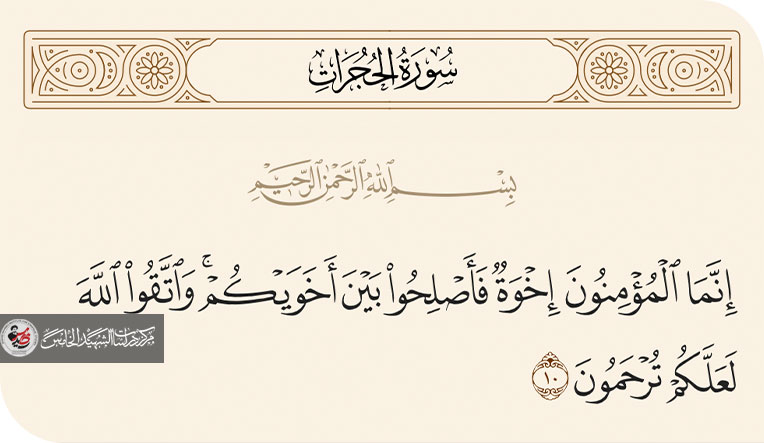 سُورَةُ الحُجُرَاتِ
بِسْمِ ٱللَّهِ ٱلرَّحْمَٰنِ ٱلرَّحِيمِ
إِنَّمَا ٱلْمُؤْمِنُونَ إِخْوَةٌ فَأَصْلِحُوا۟ بَيْنَ أَخَوَيْكُمْ ۚ وَٱتَّقُوا۟ ٱللَّهَ
مركز دراسات الشهيد الخامس
لَعَلَّكُمْ تُرْحَمُونَ ١٠